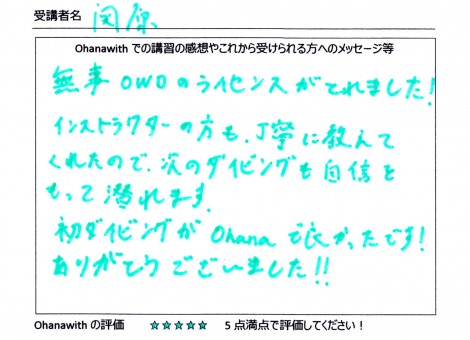 受講者名 関原
Ohanawith での講習の感想やこれから受けられる方へのメッセージ等
無事OWDのライセンスがとれました!
インストラクターの方も、丁寧に教えて
くれたので、次のダイビングも自信を
もって潜れます。
初ダイビングが Ohana で良かったです!
ありがとうございました!!
Ohanawith の評価 ★★★★★ 5 点満点で評価してください！